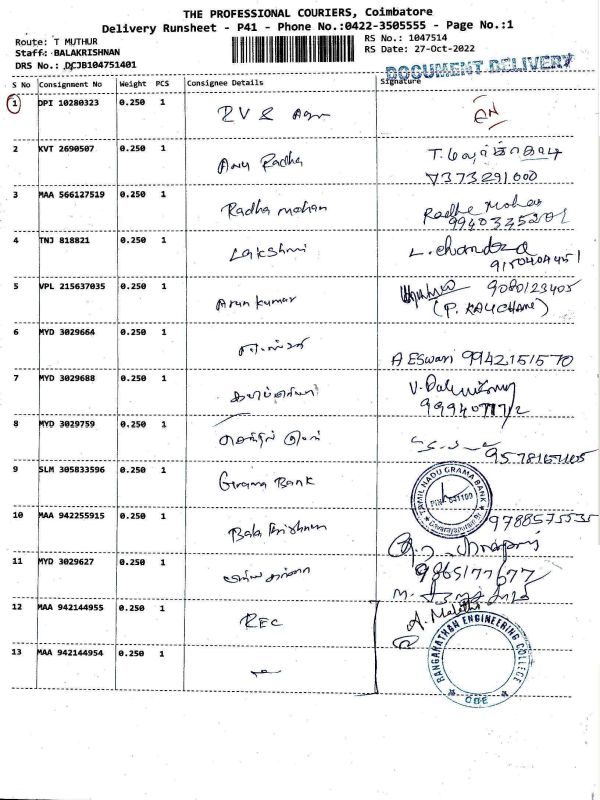 THE PROFESSIONAL COURIERS, Coimbatore
Delivery Runsheet - P41 - Phone No.:0422-3505555 - Page No.:1
Route: T MUTHUR
Staff: BALAKRISHNAN
DRS No.: DCJB104751401
RS No.: 1047514
RS Date: 27-Oct-2022
DOCUMENT DELIVERY
S No Consignment No Weight PCS Consignee Details Signature
1 DPI 10280323 0.250 1 RV &
2 KVT 2690507 0.250 1 Anu Radha
7373291000
3 MAA 566127519 0.250 1 Radha mohan Radhe Mohan
4 TNJ 818821 0.250 1 Lakshmi L. chandra
9150404451
5 VPL 215637035 0.250 1 Arun kumar 9080123405
6 MYD 3029664 0.250 1
A Eswari 9942151570
7 MYD 3029688 0.250 1
8 MYD 3029759 0.250 1
9578167105
9 SLM 305833596 0.250 1 Grama Bank
TAMIL NADU GRAMA BANK
PIN 641109
10 MAA 942255915 0.250 1 Bala Krishnan 9788575535
11 MYD 3029627 0.250 1 9865177677
12 MAA 942144955 0.250 1 REC
RANGANATHAN ENGINEERING COLLEGE
CBE
13 MAA 942144954 0.250 1